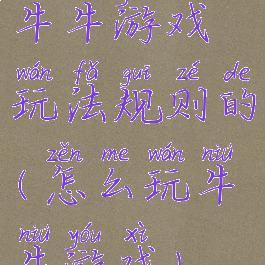 牛牛游戏
wán fǎ guī zé de
玩法规则的
zěn me wán niú
(怎么玩牛
niú yóu xì
牛游戏)